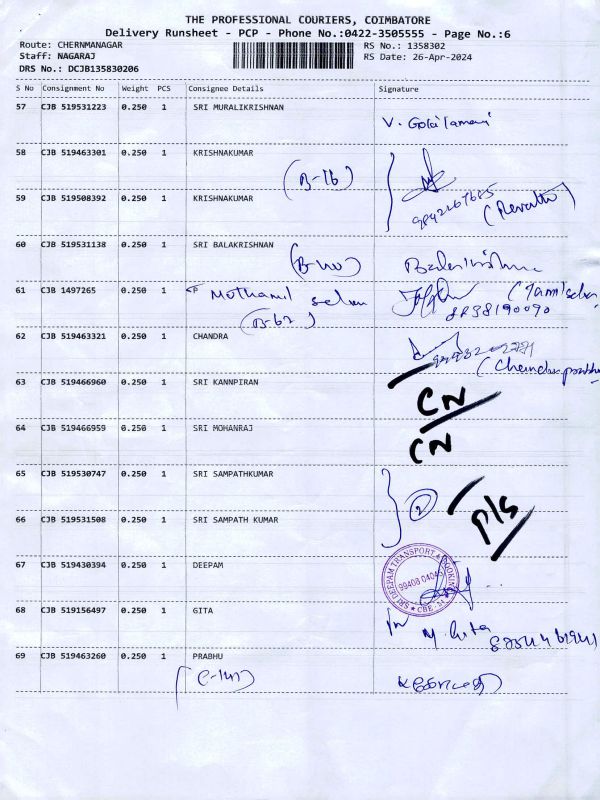 THE PROFESSIONAL COURIERS, COIMBATORE
Delivery Runsheet - PCP - Phone No.:0422-3505555 - Page No.:6
Route: CHERNMANAGAR RS No.: 1358302
Staff: NAGARAJ RS Date: 26-Apr-2024
DRS No.: DCJB135830206
S No Consignment No Weight PCS Consignee Details Signature
57 CJB 519531223 0.250 1 SRI MURALIKRISHNAN
58 CJB 519463301 0.250 1 KRISHNAKUMAR
(B-76)
59 CJB 519508392 0.250 1 KRISHNAKUMAR
(Revathi)
60 CJB 519531138 0.250 1 SRI BALAKRISHNAN
61 CJB 1497265 0.250 1
(B-62)
62 CJB 519463321 0.250 1 CHANDRA
63 CJB 519466960 0.250 1 SRI KANNPIRAN
CN
64 CJB 519466959 0.250 1 SRI MOHANRAJ
CN
65 CJB 519530747 0.250 1 SRI SAMPATHKUMAR
2
P/S
66 CJB 519531508 0.250 1 SRI SAMPATH KUMAR
67 CJB 519430394 0.250 1 DEEPAM
SRI DEEPAM TRANSPORT & BOOKING
CBE
68 CJB 519156497 0.250 1 GITA
M. Gita
69 CJB 519463260 0.250 1 PRABHU